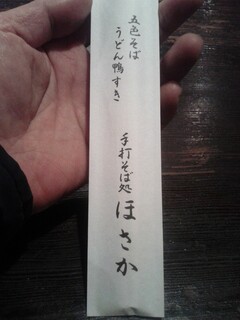 五色そば
うどん鴨すき
手打そば処
ほさか